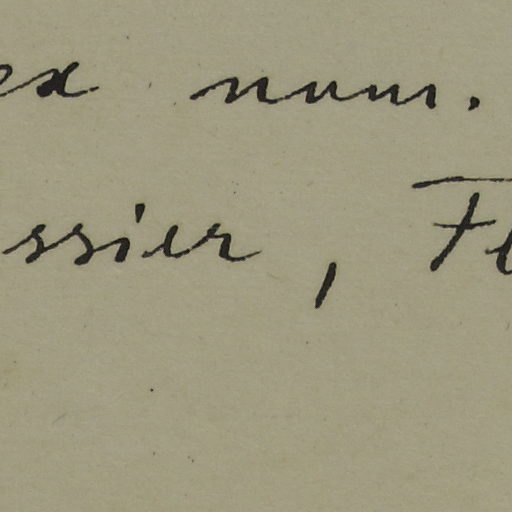 ex num.
ssier, Fl